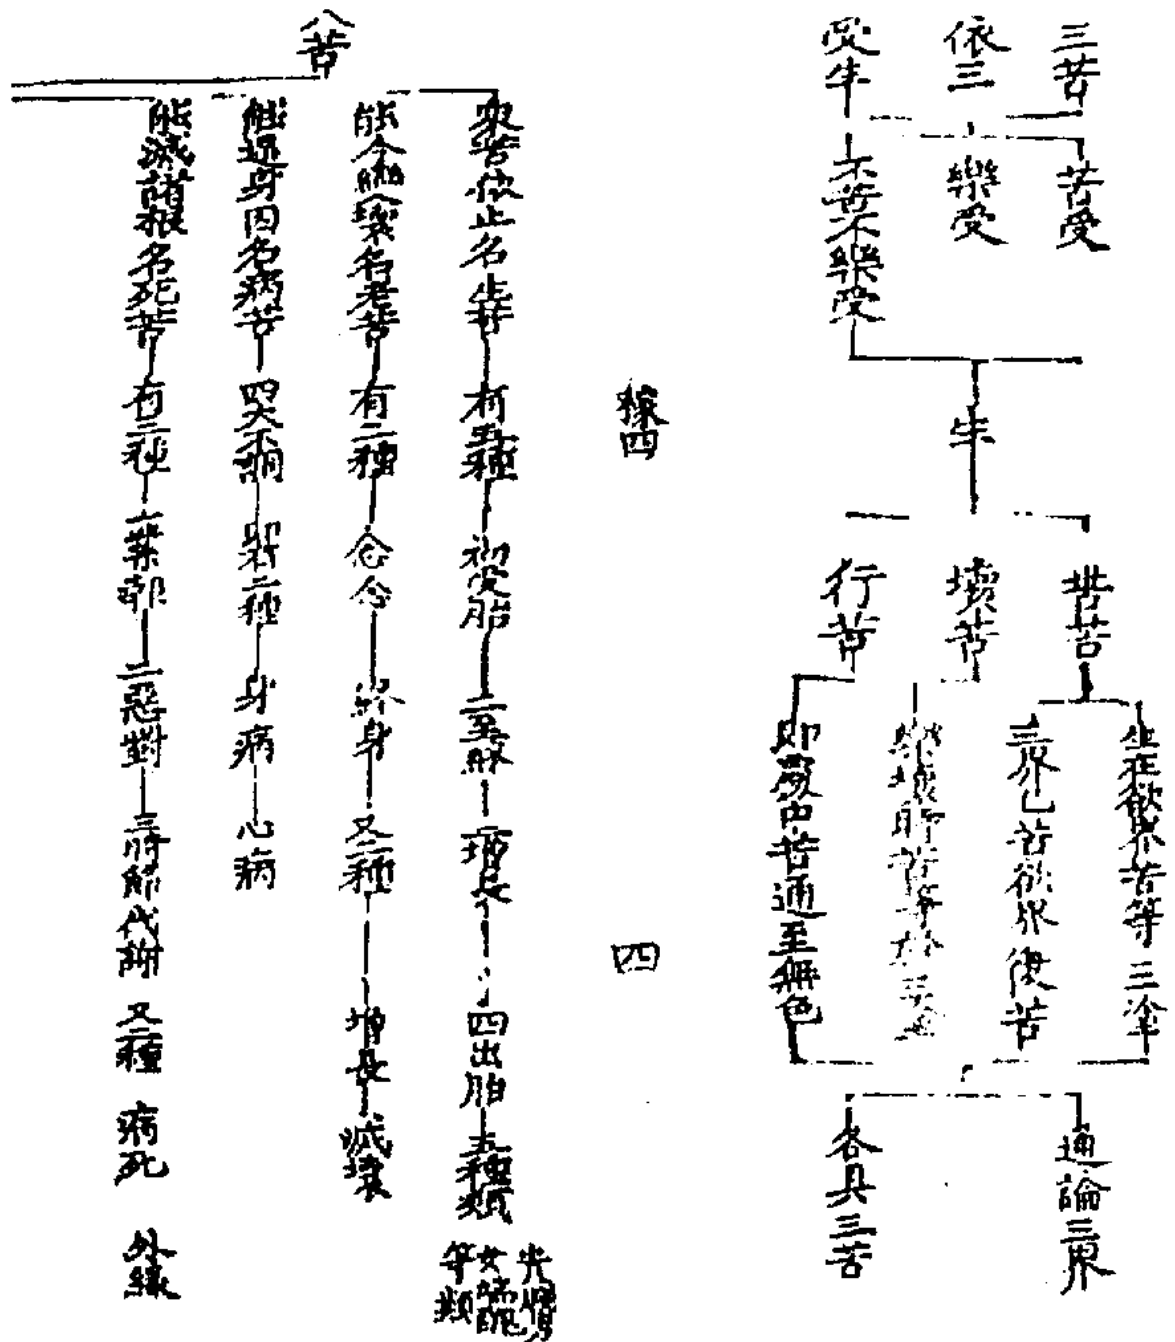 三苦
依三
受生
苦受
樂受
不苦不樂受
生
苦苦
壞苦
行苦
生在欲界苦等三塗
三界已苦欲界復苦
樂壞時苦等
即處中苦通至無色
通論三界
各具三苦
四
八苦
眾苦依止名生苦 有五種 初受胎 二至 三增長 四出胎 五種類
等類
能令 變壞名老苦 有二種 念念 終身 又二種 增長 滅壞
能 身因名病苦 四大不調 二種 身病 心病
能滅諸根名死苦 有三種 一業 二惡對 三時節代謝 又二種 病死 外緣